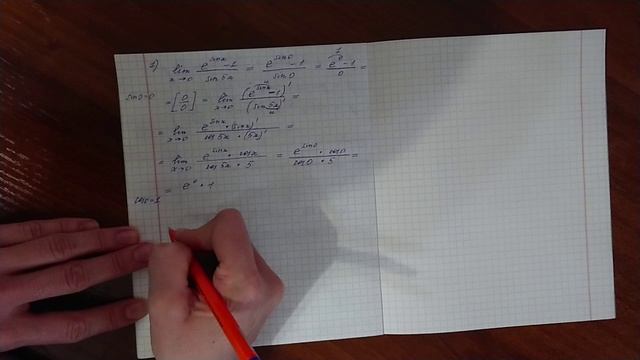 1) lim x→0 (e^sinx - 1)/(sin 5x) = (e^sin0 - 1)/(sin 0) = (e^0 - 1)/0 =
sin 0=0 = [0/0] = lim x→0 (e^sinx - 1)'/(sin 5x)' =
= lim x→0 (e^sinx · (sinx)')/(cos 5x · (5x)') =
= lim x→0 (e^sinx · cos x)/(cos 5x · 5) = (e^sin0 · cos 0)/(cos 0 · 5) =
= e^0 · 1